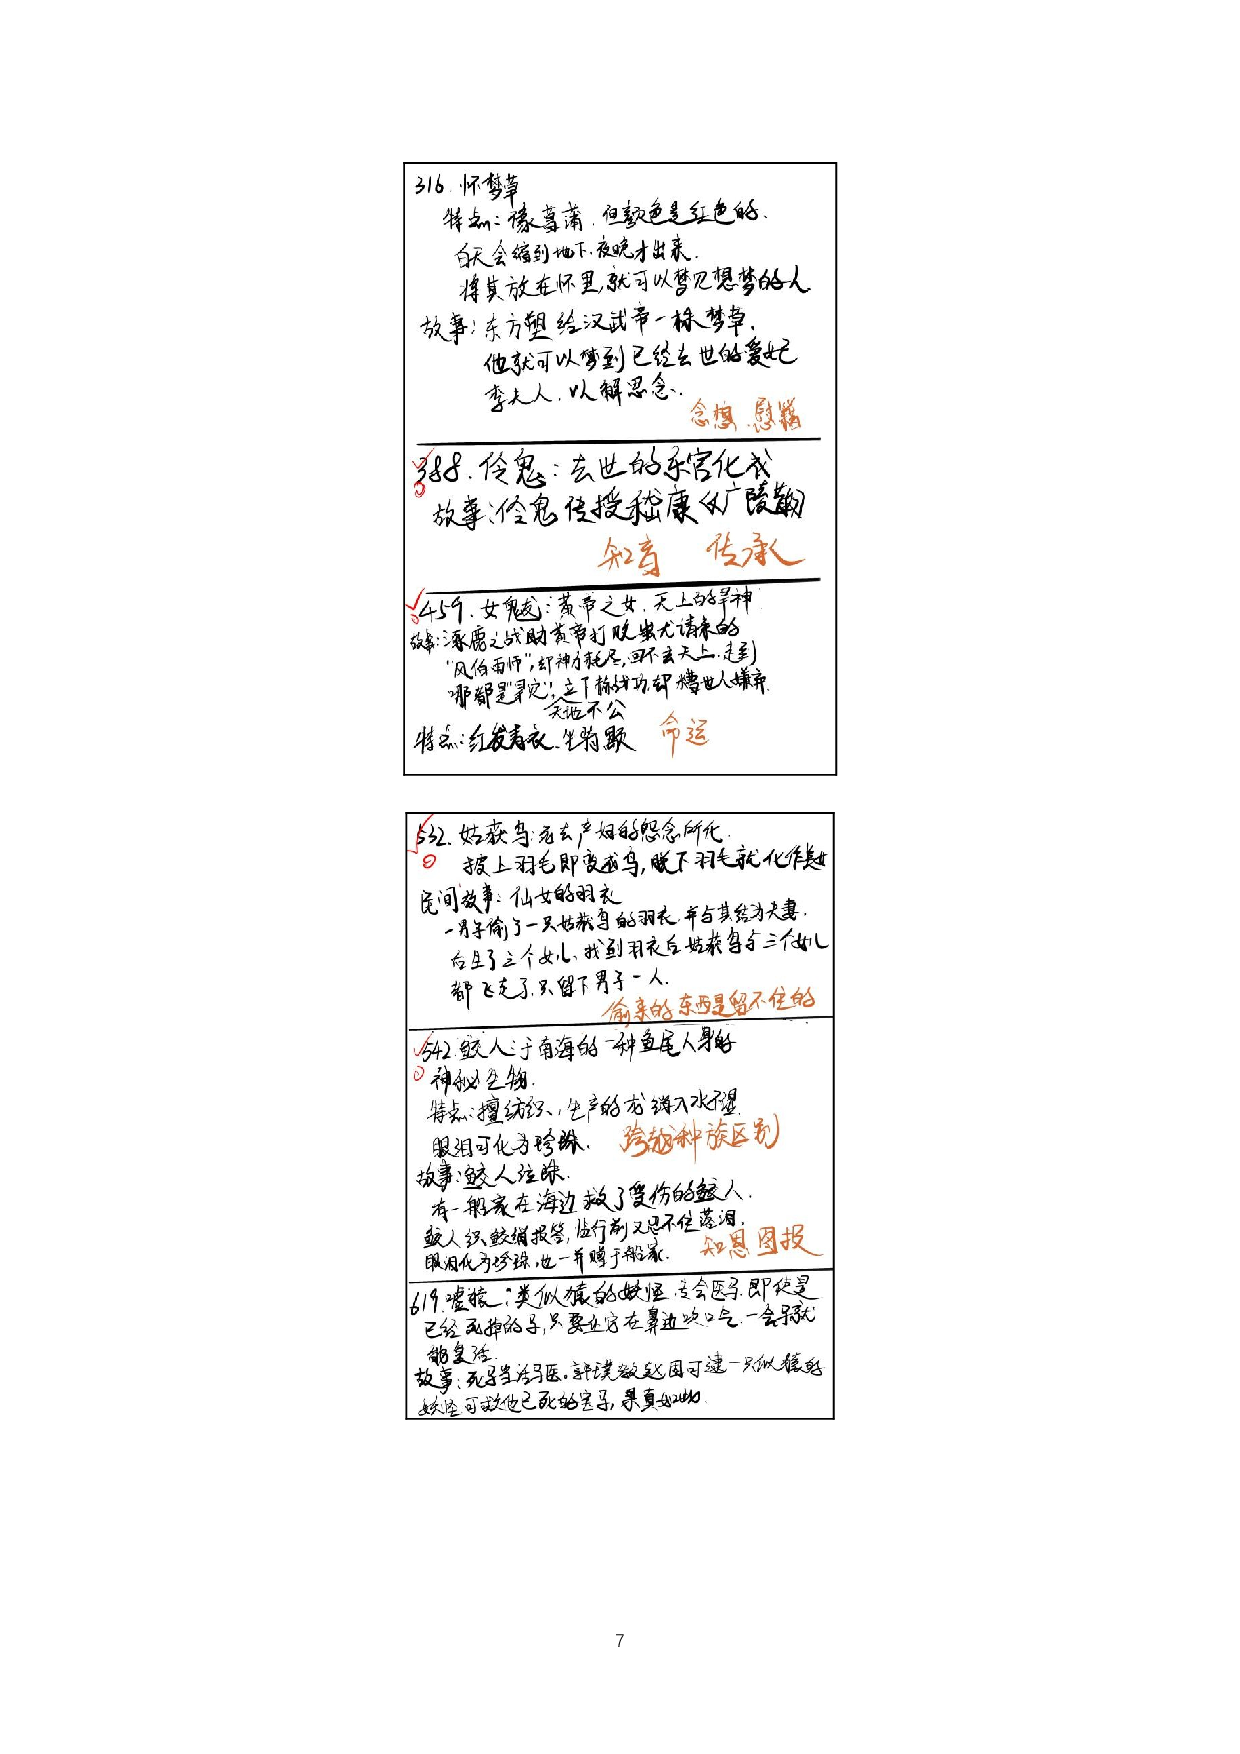 316. 怀梦草
特点：像菖蒲，但颜色是红色的.
白天会缩到地下,夜晚才出来.
将其放在怀里,就可以梦见想梦的人
故事：东方塑给汉武帝一株梦草,
他就可以梦到已经去世的爱妃
李夫人，以解思念.
念想 慰籍
388. 伶鬼：去世的乐官化成
故事：伶鬼传授嵇康《广陵散》
知音 传承
459. 女魃：黄帝之女, 天上的旱神
故事：涿鹿之战助黄帝打败蚩尤请来的
“风伯雨师”,却神力耗尽,回不去天上.走到
哪都是“旱灾”，立下棒战功,却遭世人嫌弃.
天地不公
特点：红发青衣.坐骑
命运
532. 姑获鸟：死去产妇的怨念所化.
披上羽毛即变成鸟,脱下羽毛就化作美女
民间故事：仙女的羽衣
一男子偷了一只姑获鸟的羽衣.并与其结为夫妻.
后生了三个女儿,找到羽衣后姑获鸟与三个女儿
都飞走了.只留下男子一人.
偷来的东西是留不住的
542. 鲛人：于南海的一种鱼尾人身的
神秘生物.
特点：擅纺织、生产的龙绡入水不湿
眼泪可化为珍珠.
跨越种族区别
故事：鲛人泣珠.
有一船家在海边救了受伤的鲛人.
鲛人织鲛绡报答,临行前又忍不住落泪.
眼泪化为珍珠,也一并赠于船家.
知恩图报
619. 嘘猿：类似猿的妖怪,专会医马.即使是
已经死掉的马,只要它在鼻边吹口气.一会马就
能复活.
故事：死马当活马医.郭璞教赵固可逮一只似猿的
妖怪可救他已死的宝马,果真如此.
7